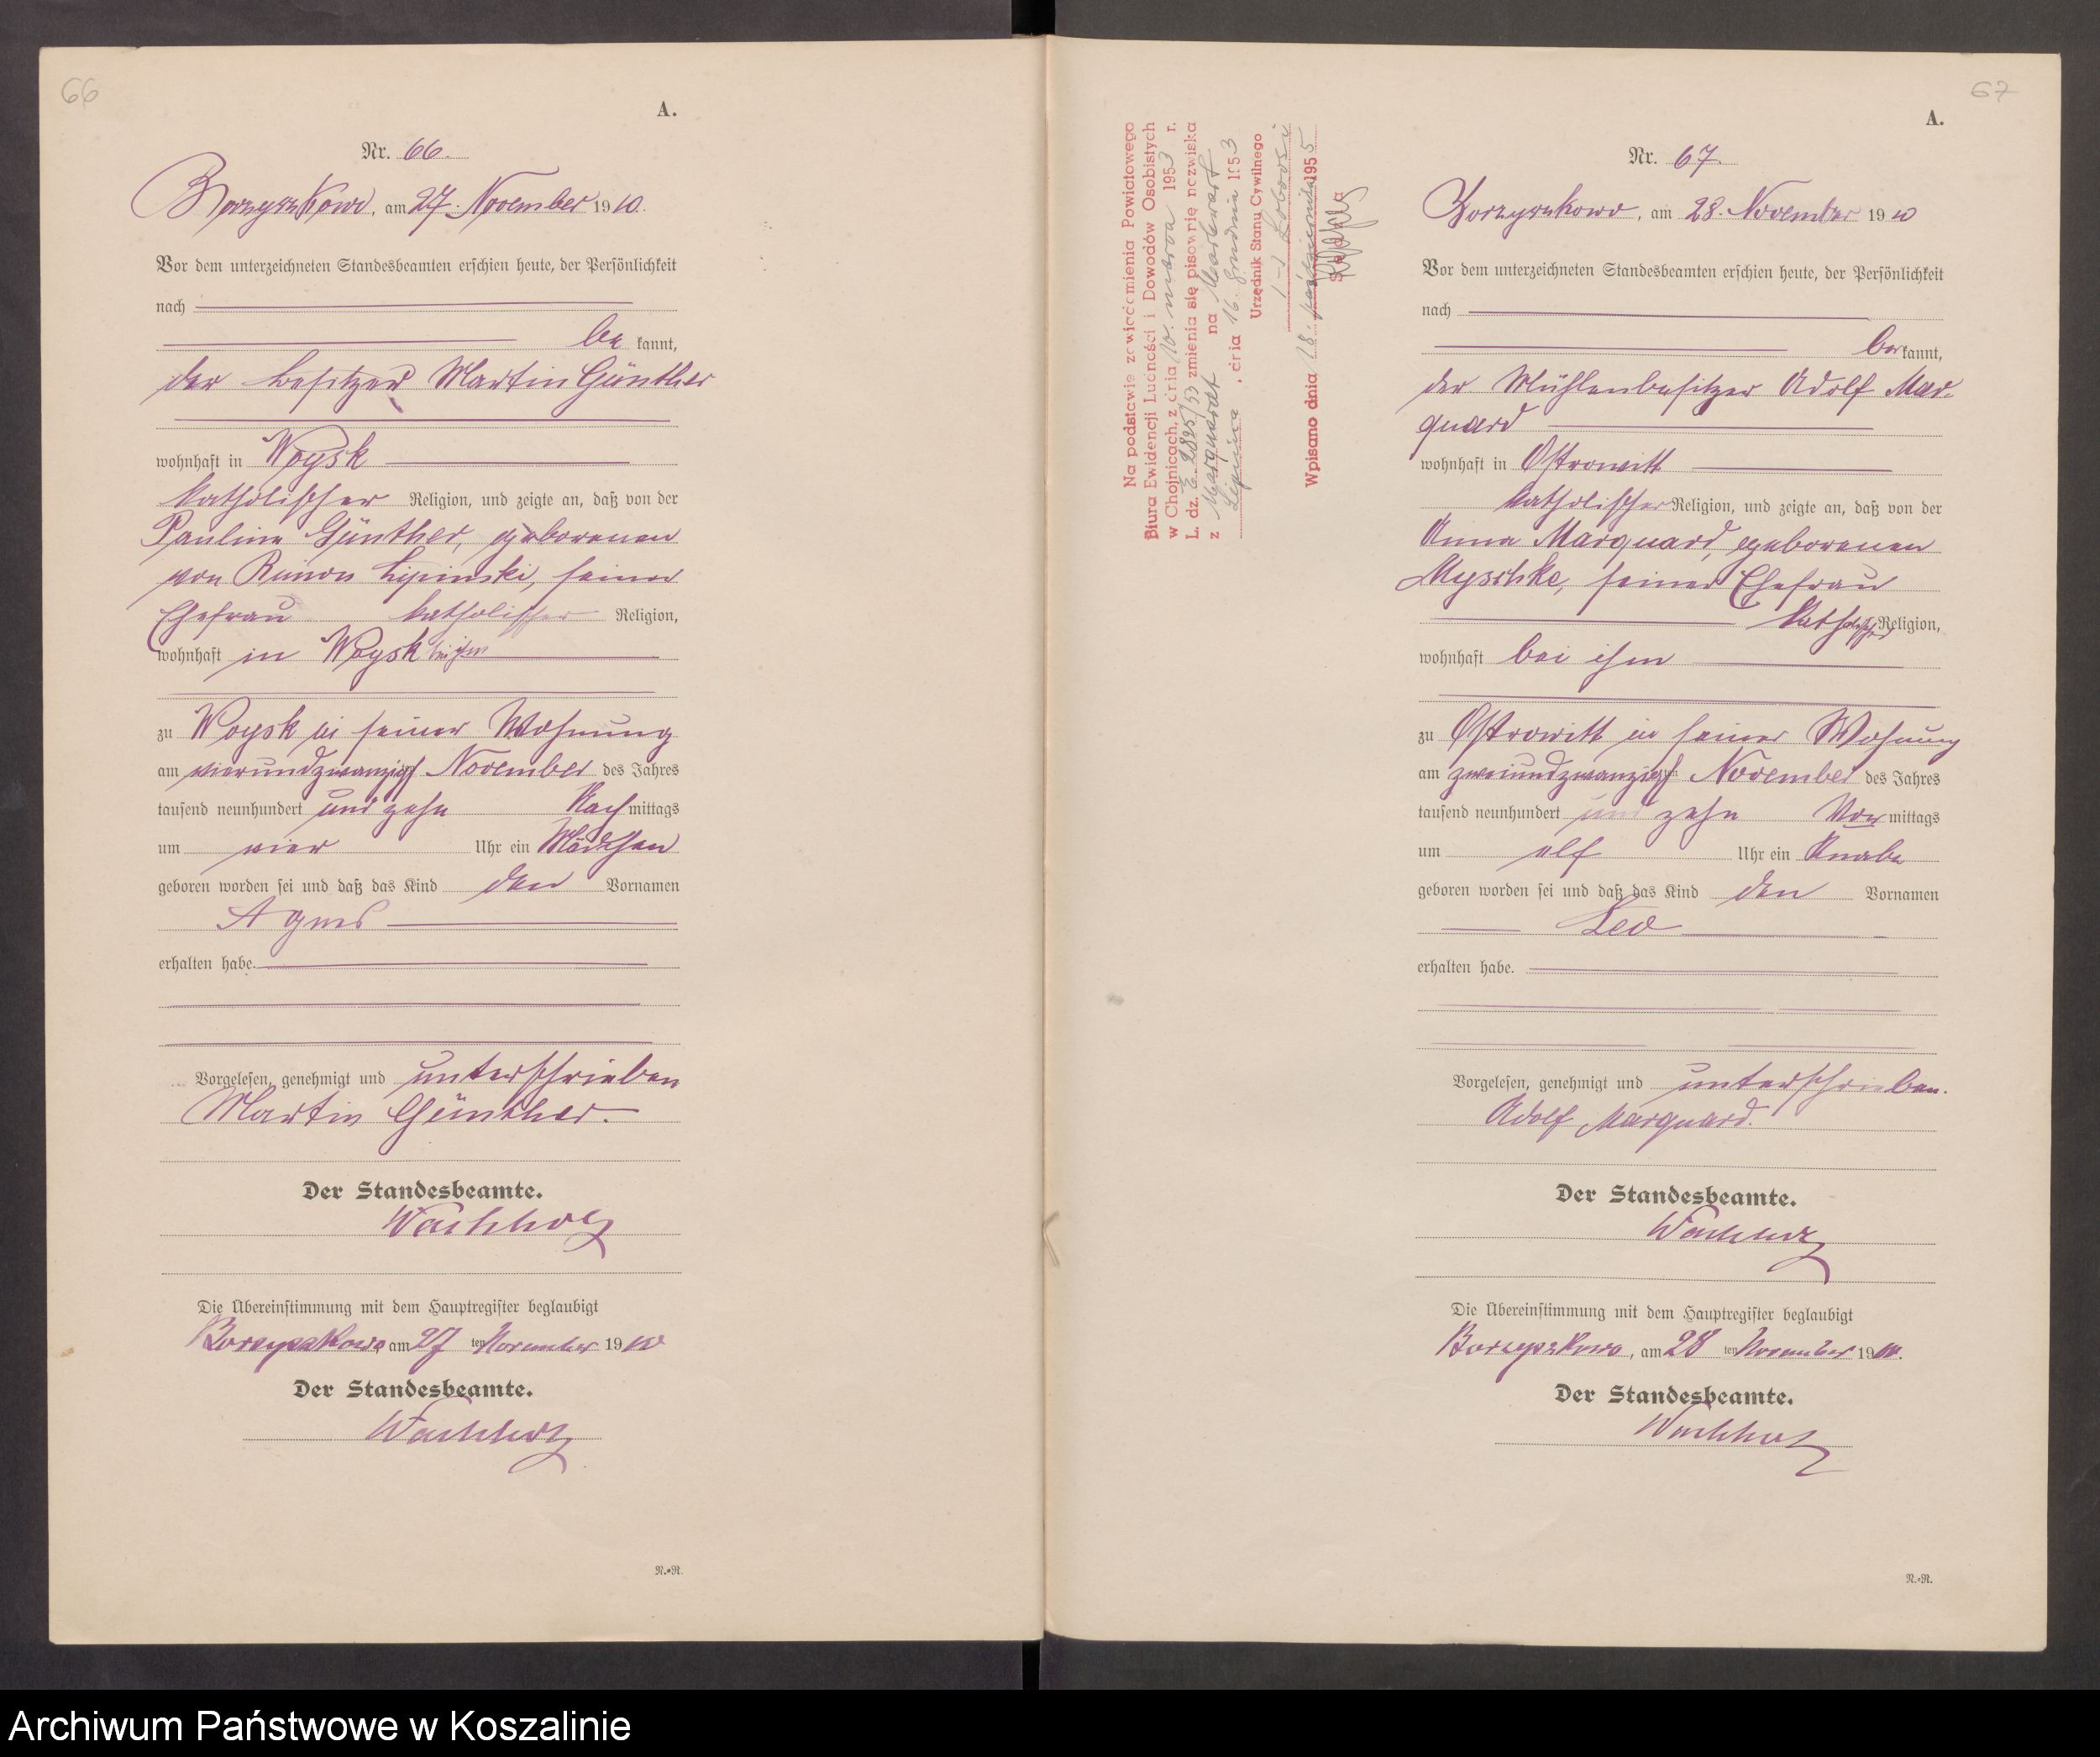 66
A.
Nr. 66.
Borzyszkowo, am 27. November 1910.
Vor dem unterzeichneten Standesbeamten erschien heute, der Persönlichkeit
nach
be kannt,
der Besitzer Martin Günther
wohnhaft in Woysk
katholischer Religion, und zeigte an, daß von der
Pauline Günther, geborenen
von Lipinski, seiner
Ehefrau katholischer Religion,
wohnhaft in Woysk bei ihm
zu Woysk in seiner Wohnung
am vierundzwanzigst November des Jahres
tausend neunhundert und zehn Nach mittags
um vier Uhr ein Mädchen
geboren worden sei und daß das Kind den Vornamen
Agnes
erhalten habe.
Vorgelesen, genehmigt und unterschrieben
Martin Günther.
Der Standesbeamte.
Wachholz
Die Übereinstimmung mit dem Hauptregister beglaubigt
Borzyszkowo, am 27 ten November 1910
Der Standesbeamte.
Wachholz
N.=R.
67
A.
Nr. 67.
Borzyszkowo, am 28. November 1910
Vor dem unterzeichneten Standesbeamten erschien heute, der Persönlichkeit
nach
be kannt,
der Mühlenbesitzer Adolf Mar-
quard
wohnhaft in Ostrowitt
katholischer Religion, und zeigte an, daß von der
Anna Marquard geborenen
Myschke, seiner Ehefrau
katholischer Religion,
wohnhaft bei ihm
zu Ostrowitt in seiner Wohnung
am zweiundzwanzigst November des Jahres
tausend neunhundert und zehn Vor mittags
um elf Uhr ein Knabe
geboren worden sei und daß das Kind den Vornamen
Leo
erhalten habe.
Vorgelesen, genehmigt und unterschrieben.
Adolf Marquard.
Der Standesbeamte.
Wachholz
Die Übereinstimmung mit dem Hauptregister beglaubigt
Borzyszkowo, am 28 ten November 1910.
Der Standesbeamte.
Wachholz
N.=R.
Na podstawie zawiadomienia Powiatowego
Biura Ewidencji Ludności i Dowodów Osobistych
w Chojnicach, z dnia 10. marca 1953 r.
L. dz. E. 2825/53 zmienia się pisownię nazwiska
z Marquardt na Markwart
Lipnica, dnia 16. grudnia 1953
Urzędnik Stanu Cywilnego
Wpisano dnia 18. października 1955
Archiwum Państwowe w Koszalinie